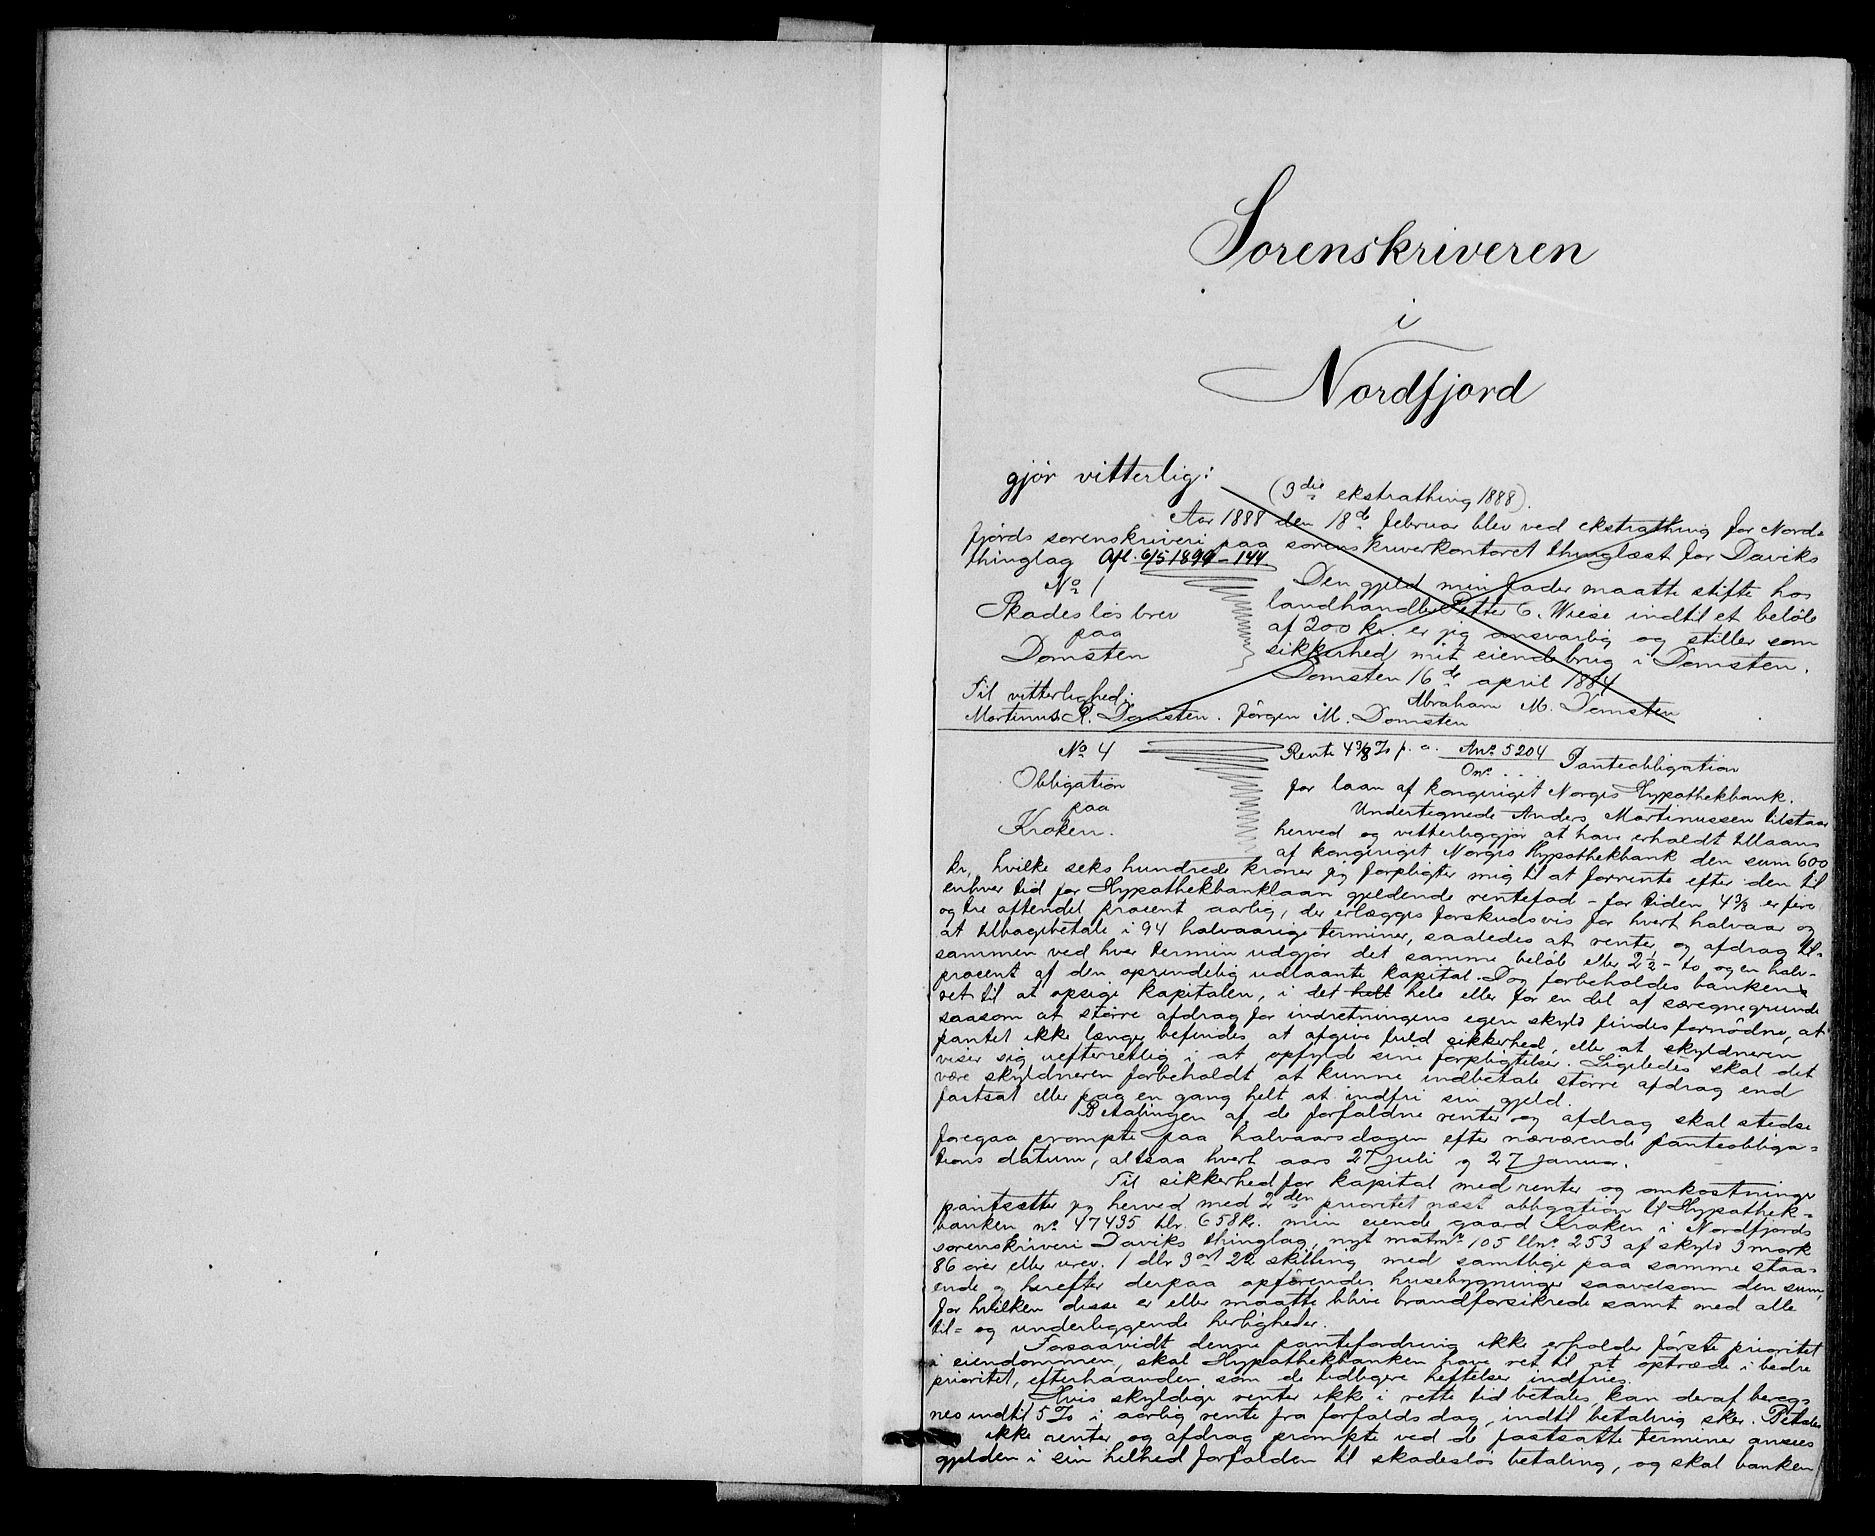 Sorenskriveren
i
Nordfjord
gjør vitterlig:
(3die ekstrathing 1888).
Aar 1888 den 18de februar blev ved ekstrathing for Nord-
fjords sorenskriveri paa sorenskriverkontoret thinglæst for Daviks
thinglag Afl. 6/5 1890-144.
No 1
Skadesløsbrev
paa
Domsten
Den gjeld min fader maatte stifte hos
landhandler Peter C. Wiese indtil et beløb
af 200 kr. er jeg ansvarlig og stiller som
sikkerhed mit eiende brug i Domsten.
Domsten 16de april 1884
Abraham M. Domsten
Til vitterlighed:
Martinus R. Domsten. Jørgen M. Domsten
No 4
Obligation
paa
Kroken.
Rente 4 3/8 % p. a. Ano 5204 Panteobligation
Ono ...
for laan af kongeriget Norges Hypothekbank.
Undertegnede Anders Martinussen tilstaar
herved og vitterliggjør at have erholdt tillaans
af kongeriget Norges Hypothekbank den sum 600
kr, hvilke seks hundrede kroner jeg forpligter mig til at forrente efter den til
enhver tid for Hypothekbanklaan gjeldende rentefod - for tiden 4 3/8 er fire
og tre ottendel procent aarlig, der erlægges forskudsvis for hvert halvaar og
at tilbagebetale i 94 halvaarige terminer, saaledes at renter og afdrag til-
sammen ved hver termin udgjør det samme beløb eller 2 1/2 - to og en halv-
procent af den oprindelig udlaante kapital. Dog forbeholdes banken
ret til at opsige kapitalen, i det helt hele eller for en del af særegne grunde
saasom at større afdrag for indretningens egen skyld findes fornødne, at
pantet ikke længer befindes at afgive fuld sikkerhed, eller at skyldneren
viser sig uefterretlig i at opfylde sine forpligtelser. Ligeledes skal det
være skyldneren forbeholdt at kunne indbetale større afdrag end
fastsat eller paa en gang helt at indfri sin gjeld.
Betalingen af de forfaldne renter og afdrag skal stedse
foregaa prompte paa halvaarsdagen efter nærværende panteobliga-
tions datum, altsaa hvert aars 27 juli og 27 januar.
Til sikkerhed for kapital med renter og omkostninger
pantsætter jeg herved med 2den prioritet næst obligation til Hypothek-
banken no 47435 tlr. 658 kr. min eiende gaard Kroken i Nordfjords
sorenskriveri Daviks thinglag, nyt matrno 105 lno 253 af skyld 3 mark
86 ører eller urev. 1 dlr 3 ort 22 skilling med samtlige paa samme staa-
ende og herefter derpaa opførendes husebygninger saavelsom den sum,
for hvilken disse er eller maatte blive brandforsikrede samt med alle
til- og underliggende herligheder.
Forsaavidt denne pantefordring ikke erholder første prioritet
i eiendommen, skal Hypothekbanken have ret til at optræde i bedre
prioritet, efterhaanden som de tidligere heftelser indfries.
Hvis skyldige renter ikke i rette tid betales, kan deraf bereg-
nes indtil 5 % i aarlig rente fra forfaldsdag, indtil betaling sker. Betales
ikke renter og afdrag prompte ved de fastsatte terminer ansees
gjelden i sin helhed forfalden til skadesløs betaling, og skal banken